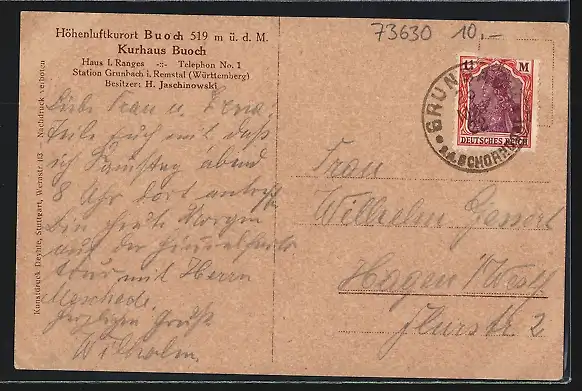 73630 10.-
Höhenluftkurort Buoch 519 m ü. d. M.
Kurhaus Buoch
Haus I. Ranges -::- Telephon No. 1
Station Grunbach i. Remstal (Württemberg)
Besitzer: H. Jaschinowski
Nachdruck verboten
Kunstdruck Deyhle, Stuttgart, Werastr. 113
Liebe Frau u. Erna.
Teile Euch mit daß
ich Samstag abend
8 Uhr dort
Bin heute Morgen
auf der
Tour mit Herrn
Meschede.
Herzlichen Gruß
Wilhelm.
1¼ M
DEUTSCHES REICH
GRUN
SCHORN
Frau
Wilhelm
Hagen i/Westf.
Flurstr 2